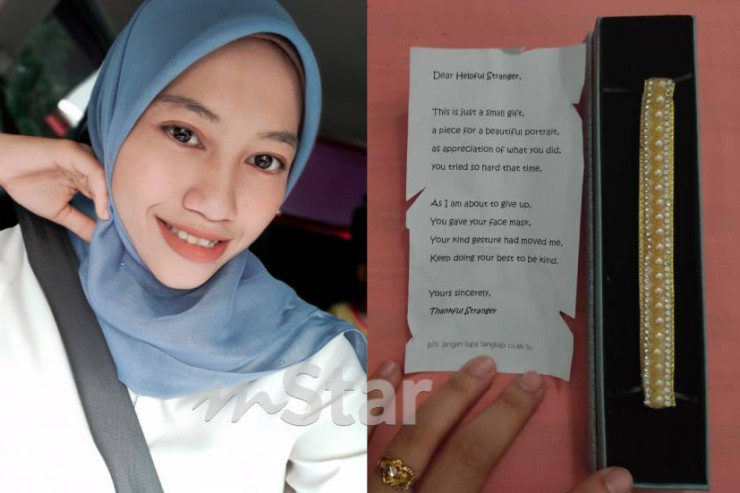 Dear Helpful Stranger,
This is just a small gift,
a piece for a beautiful portrait,
as appreciation of what you did,
you tried so hard that time.
As I am about to give up,
You gave your face mask,
Your kind gesture had moved me,
Keep doing your best to be kind.
Yours sincerely,
Thankful Stranger
p/s: jangan lupa tangkap cicak tu
mStar